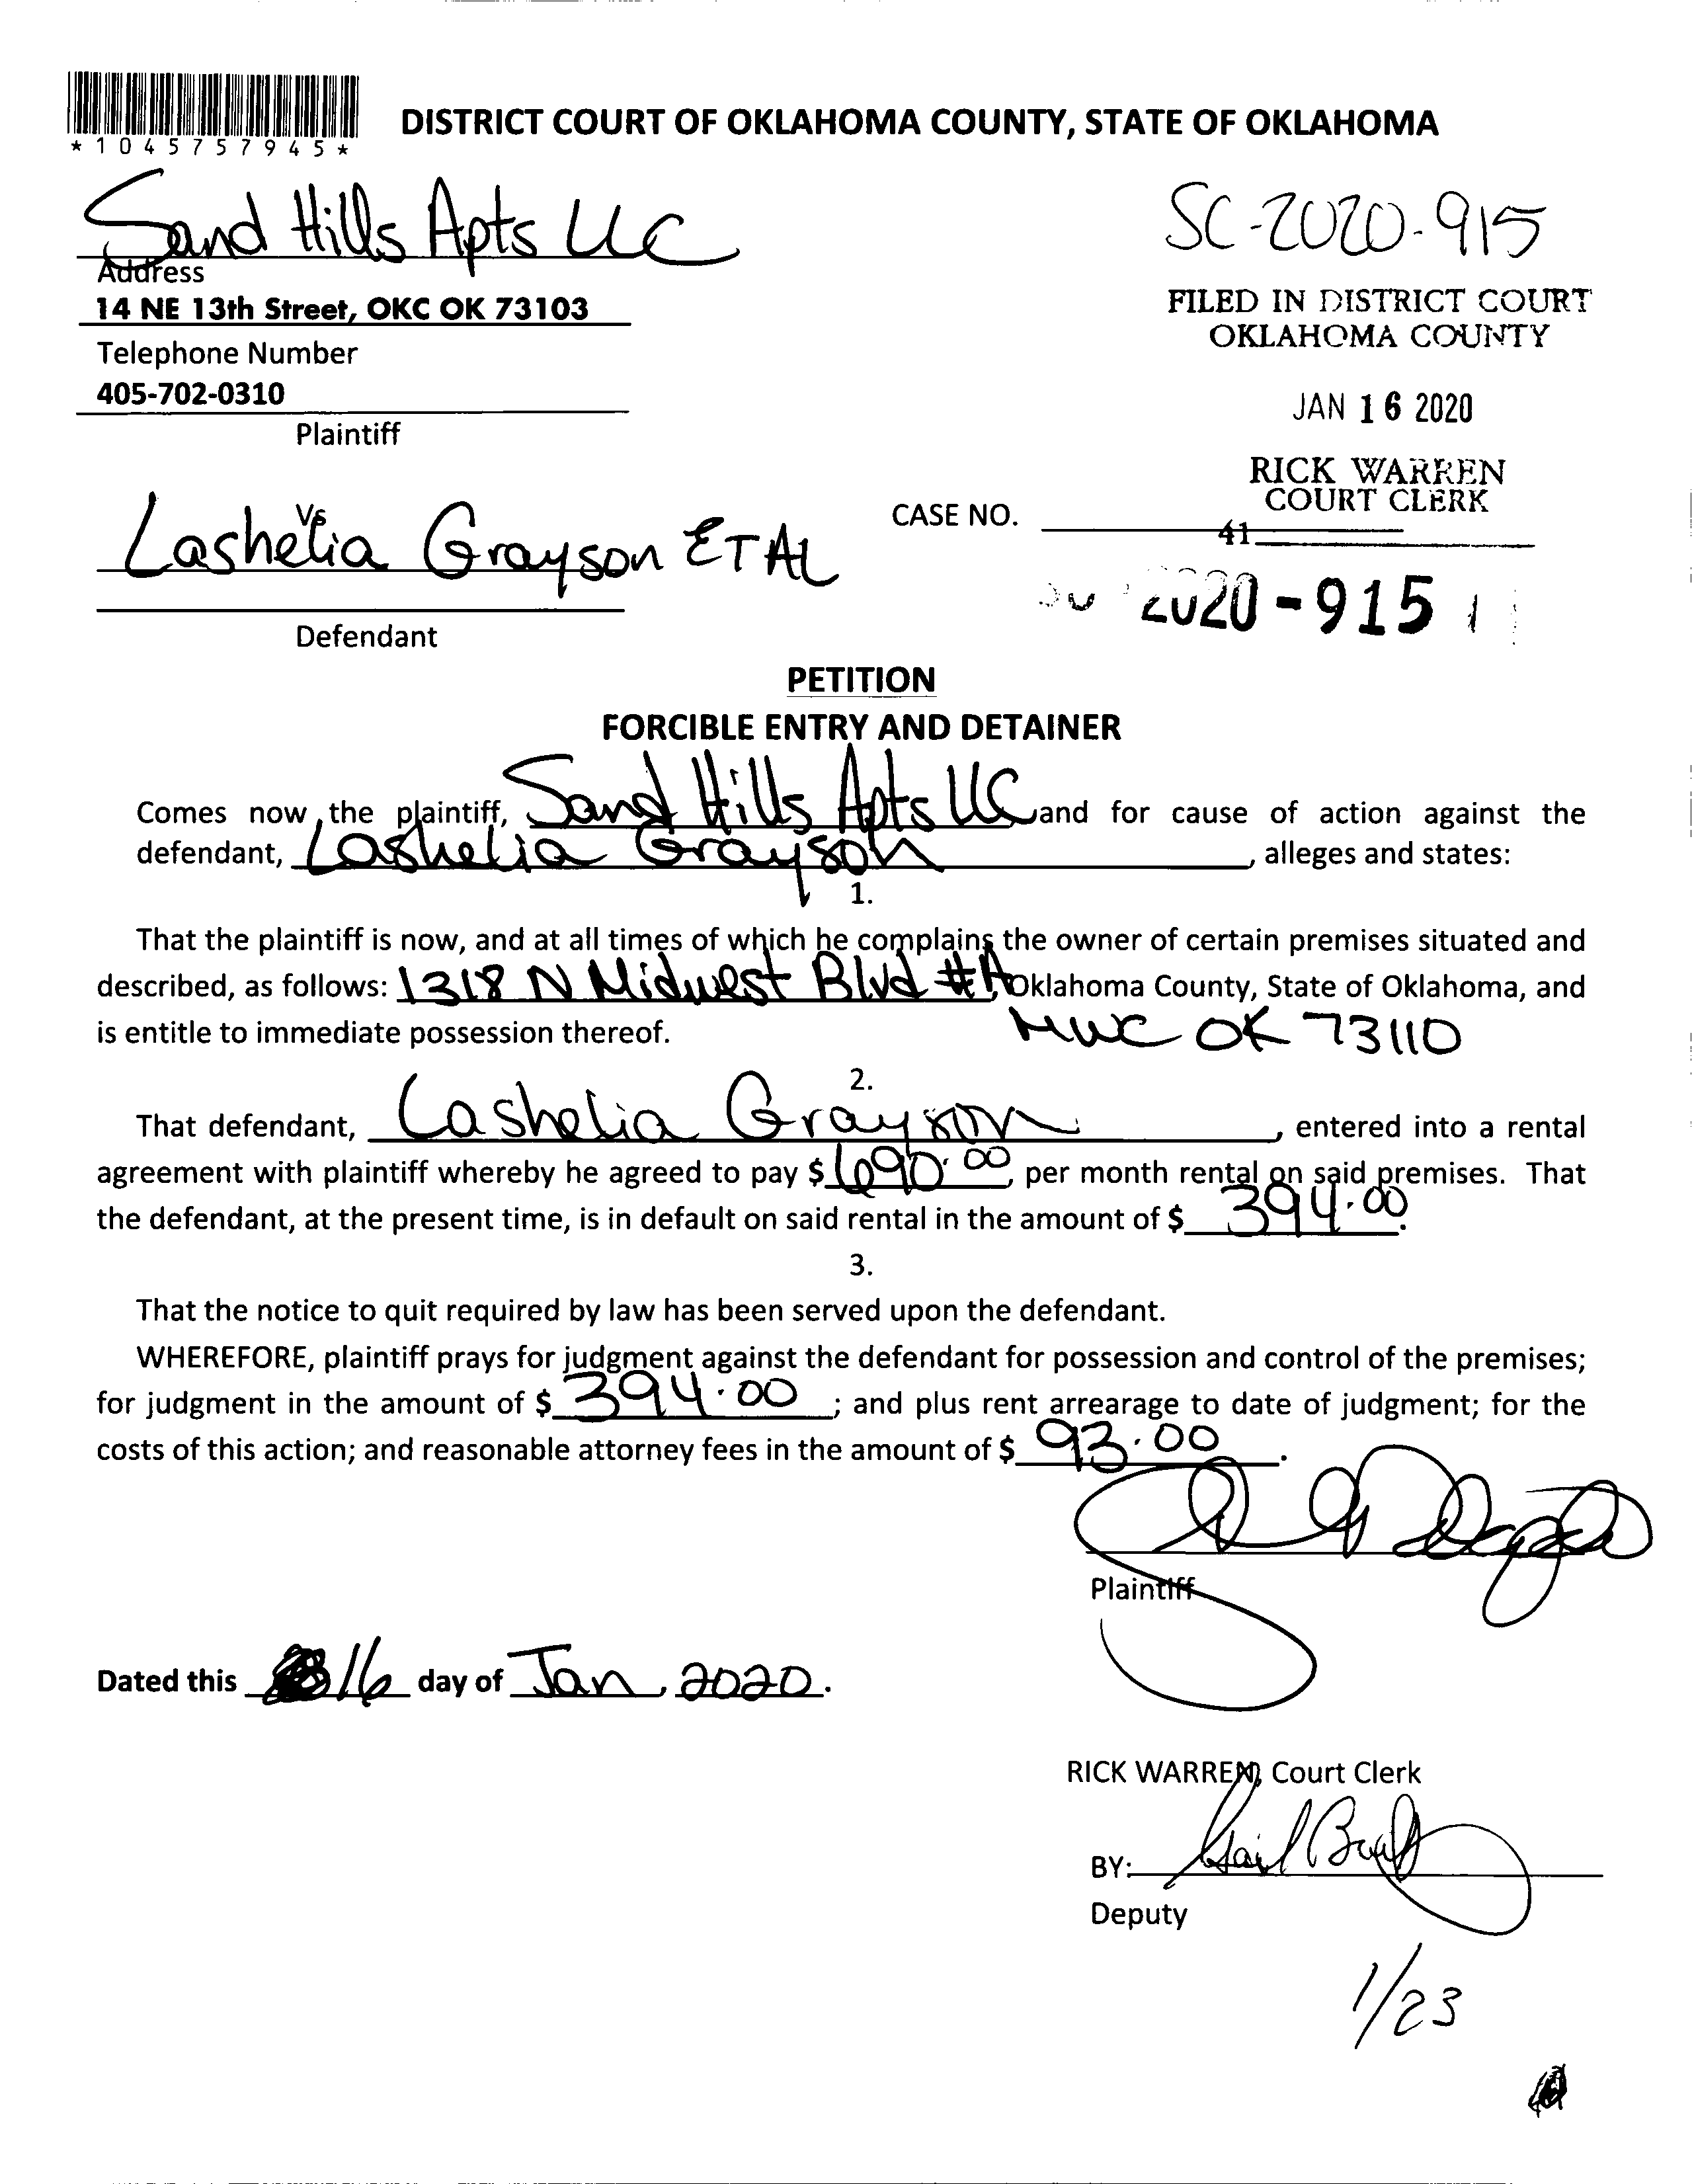 *1045757945*
DISTRICT COURT OF OKLAHOMA COUNTY, STATE OF OKLAHOMA
Sand Hills Apts LLC
SC-2020-915
Address
14 NE 13th Street, OKC OK 73103
FILED IN DISTRICT COURT
OKLAHOMA COUNTY
Telephone Number
405-702-0310
JAN 16 2020
Plaintiff
RICK WARREN
COURT CLERK
Vs
CASE NO.
41
Lashelia Grayson ET AL
2020-915
Defendant
PETITION
FORCIBLE ENTRY AND DETAINER
Comes now the plaintiff, Sand Hills Apts LLC and for cause of action against the
defendant, Lashelia Grayson, alleges and states:
1.
That the plaintiff is now, and at all times of which he complains the owner of certain premises situated and
described, as follows: 1318 N Midwest Blvd #A, Oklahoma County, State of Oklahoma, and
is entitle to immediate possession thereof. MWC OK 73110
2.
That defendant, Lashelia Grayson, entered into a rental
agreement with plaintiff whereby he agreed to pay $690.00, per month rental on said premises. That
the defendant, at the present time, is in default on said rental in the amount of $ 394.00.
3.
That the notice to quit required by law has been served upon the defendant.
WHEREFORE, plaintiff prays for judgment against the defendant for possession and control of the premises;
for judgment in the amount of $ 394.00; and plus rent arrearage to date of judgment; for the
costs of this action; and reasonable attorney fees in the amount of $ 93.00.
Plaintiff
Dated this 16 day of Jan, 2020.
RICK WARREN, Court Clerk
BY: Gail
Deputy
1/23